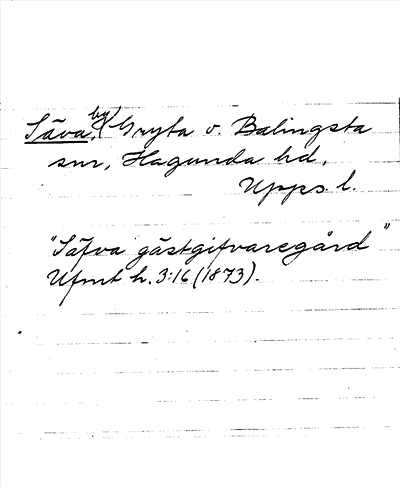 Säva, by, Gryta o. Balingsta
snr, Hagunda hd,
Upps. l.
"Säfva gästgifvaregård"
Ufmt h. 3:16 (1873).